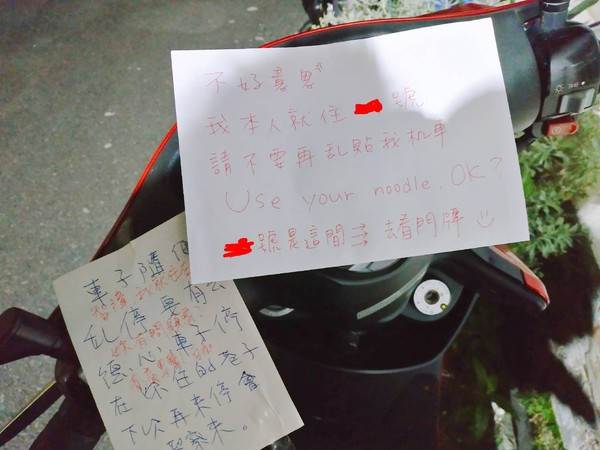 不好意思
我本人就住 號
請不要再乱點我机車
Use your noodle. OK?
號是這間⇉ 去看門牌
車子隨便
乱停要有公
德心 車子停
在你住的巷子
下次再來停會
警察來。